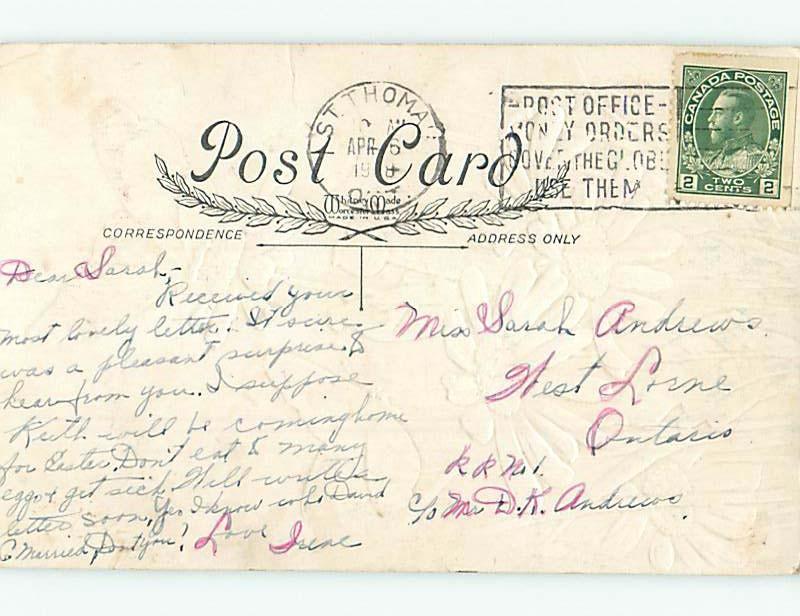 ST. THOMAS
APR 6
POST OFFICE-
MONEY ORDERS
COVER THE GLOBE
USE THEM
CANADA POSTAGE
2 TWO CENTS 2
Post Card
Whitney Made
Worcester, Mass.
MADE IN U.S.A.
CORRESPONDENCE
ADDRESS ONLY
Dear Sarah,-
Received your
most lovely letter. It sure
was a pleasant surprise to
hear from you. I suppose
Keith will be coming home
for Easter. Don't eat to many
eggs & get sick. Will write a
letter soon. Yes I know who David
Married, Don't you? Love Irene
Miss Sarah Andrews.
West Lorne
Ontario
R R No 1.
c/o Mr D.K. Andrews.